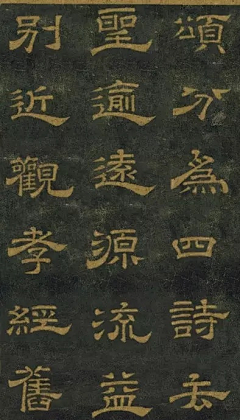 頌分為四詩去
聖逾遠源流益
別近觀孝經舊